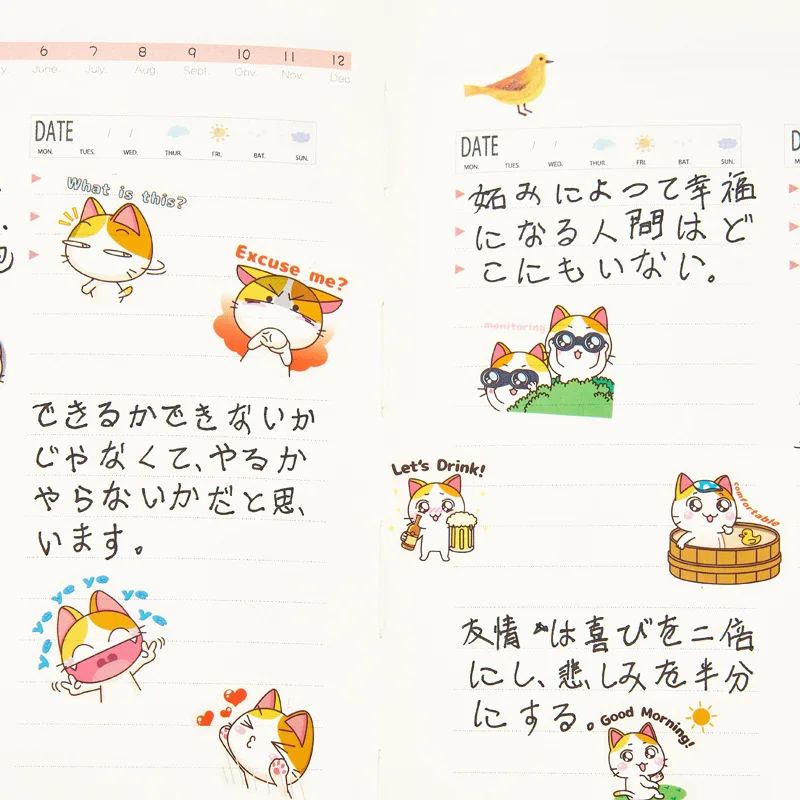 6 7 8 9 10 11 12
June. July. Aug. Sept. Onv. Nov. Dec
DATE / /
MON. TUES. WED. THUR. FRI. BAT. SUN.
What is this?
Excuse me?
できるかできないか
じゃなくて、やるか
やらないかだと思、
います。
yo yo yo yo yo yo
DATE / /
MON. TUES. WED. THUR. FRI. BAT. SUN.
妬みによって幸福
になる人間はど
こにもいない。
monitoring
Let's Drink!
comfortable
友情は喜びを二倍
にし、悲しみを半分
にする。
Good Morning!